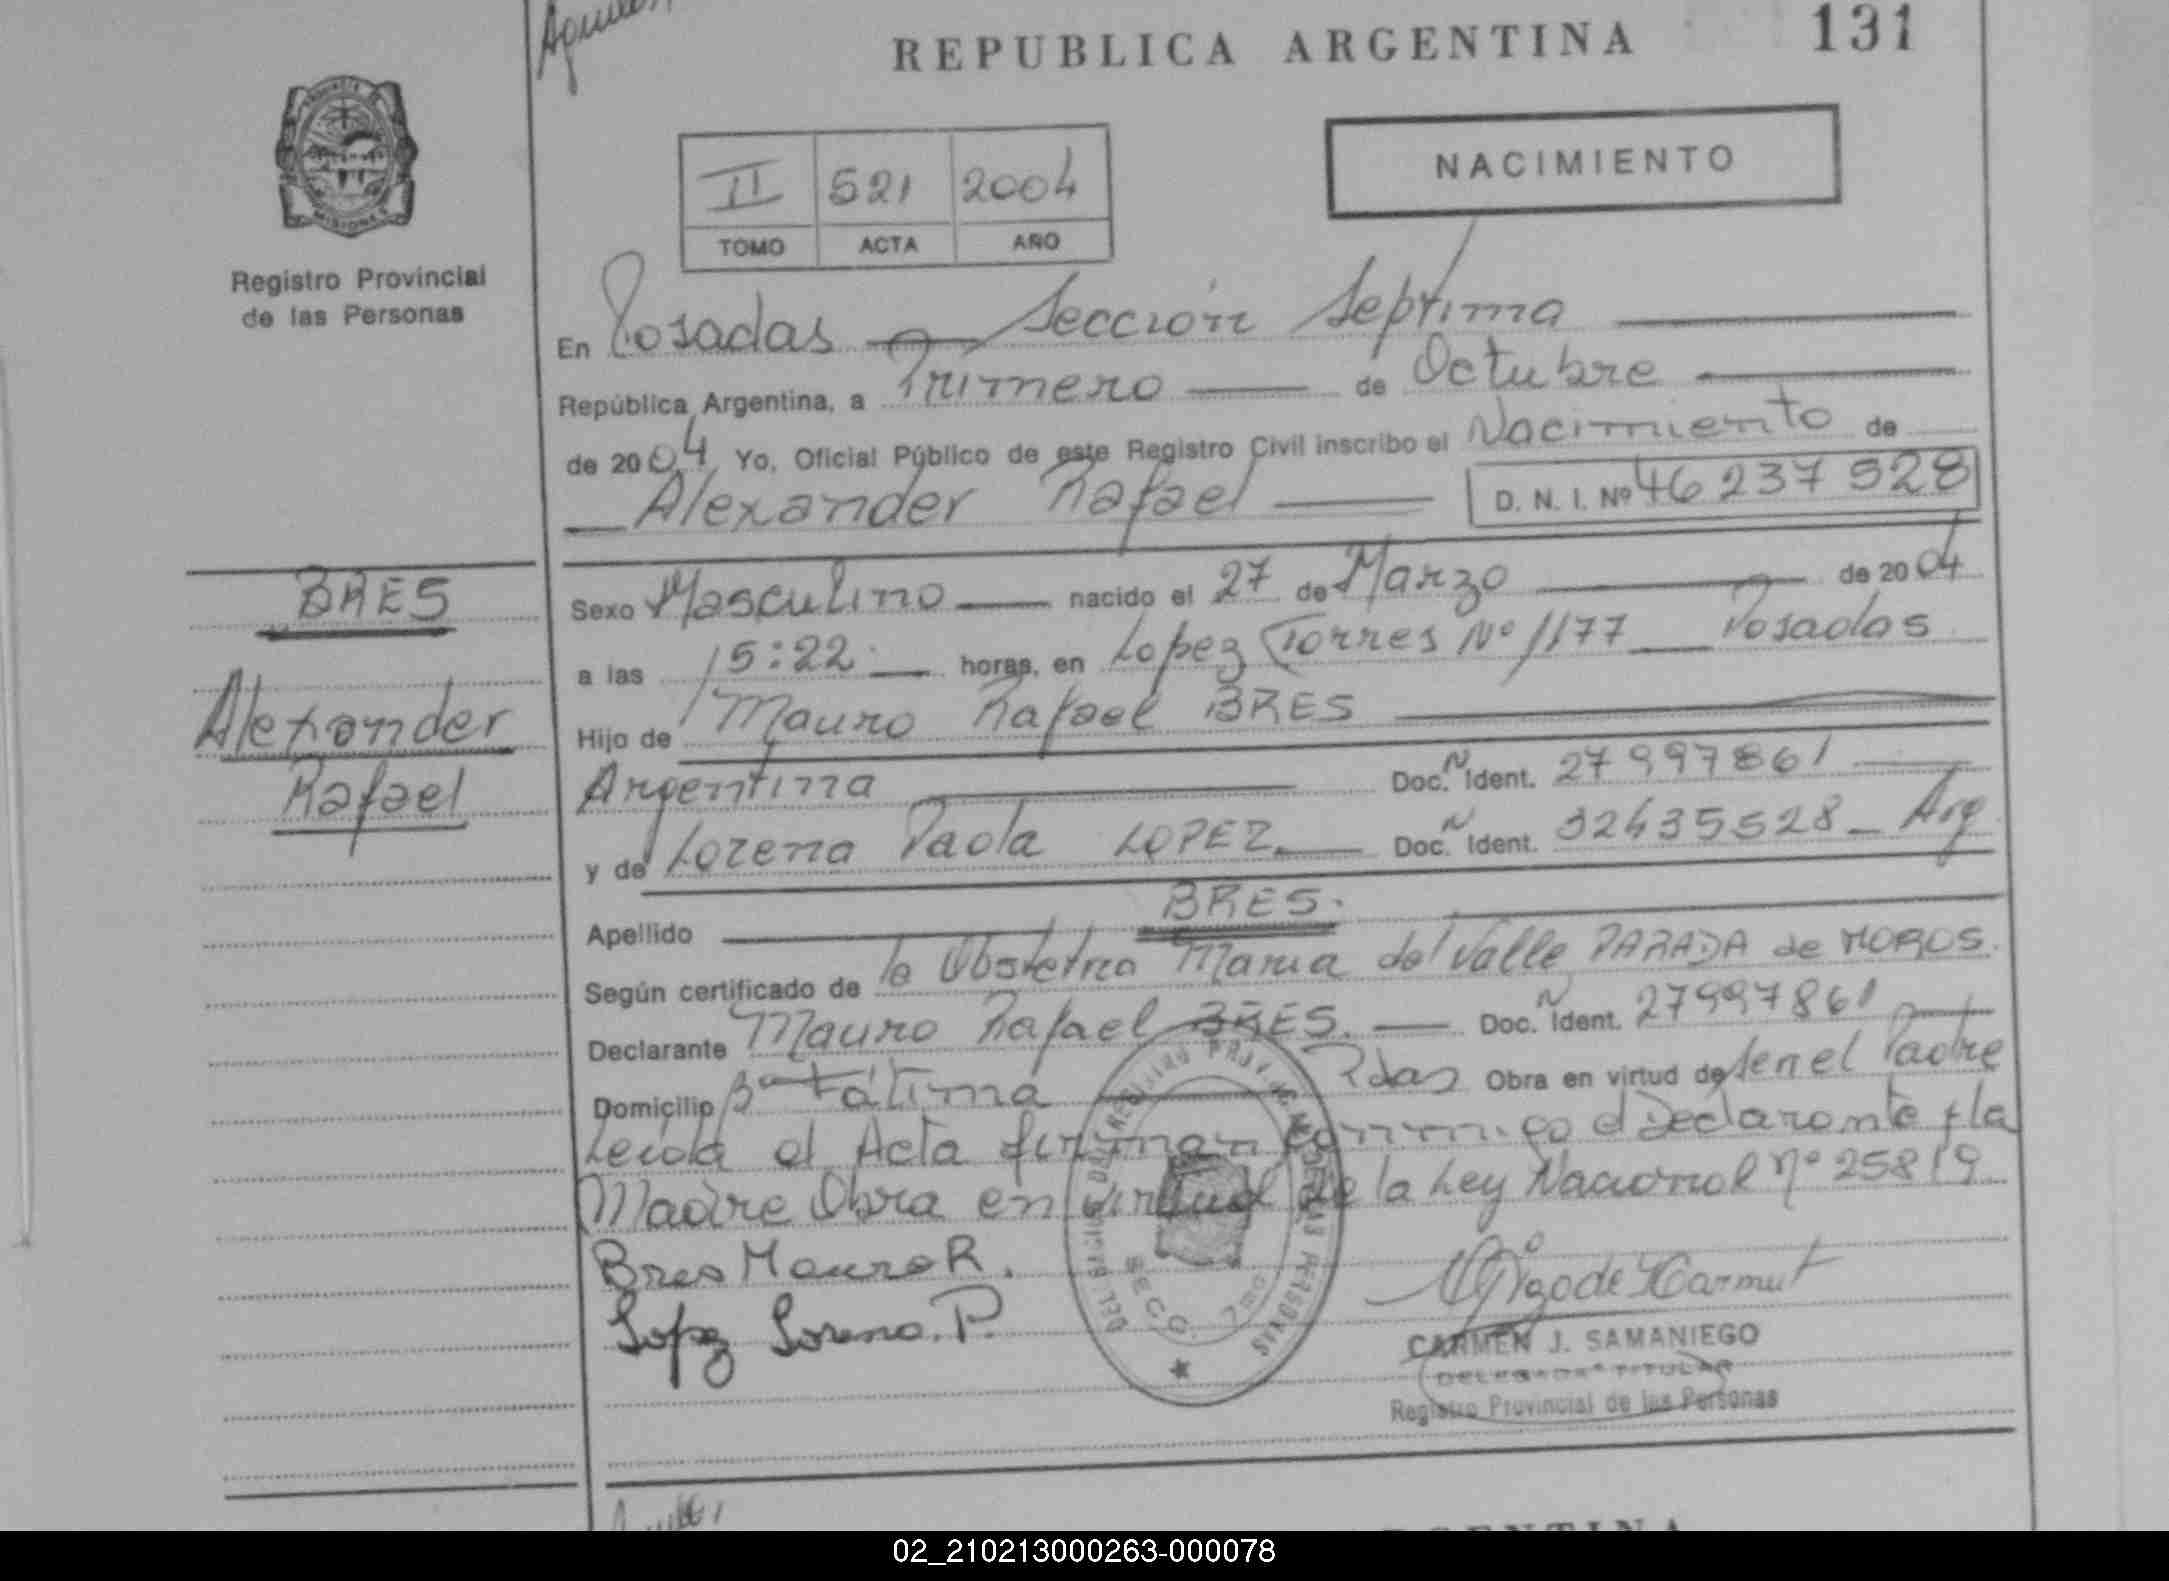 REPUBLICA ARGENTINA
131
PROVINCIA DE
MISIONES
Registro Provincial
de las Personas
NACIMIENTO
II 521 2004
TOMO ACTA AÑO
En Posadas Sección Septima
República Argentina, a Primero de Octubre
de 2004 Yo, Oficial Público de este Registro Civil inscribo el Nacimiento de
Alexander Rafael D. N. I. Nº 46 237 528
BRES
Alexander
Rafael
Sexo Masculino nacido el 27 de Marzo de 2004
a las 15:22 horas, en Lopez Torres Nº 1177 Posadas
Hijo de Mauro Rafael BRES
Argentina Doc. N Ident. 27 997861
y de Lorena Paola LOPEZ Doc. N Ident. 32435528 Arg
Apellido BRES.
Según certificado de la Obstetrica Maria del Valle PARADA de MOROS.
Declarante Mauro Rafael BRES. Doc. N Ident. 27997861
Domicilio Bº Fátima Pdas Obra en virtud de ser el Padre
Leida el Acta firman conmigo el Declarante y la
Madre Obra en virtud de la Ley Nacional Nº 25819
Bres Mauro R.
Lopez Lorena. P.
CARMEN J. SAMANIEGO
DELEGADA TITULAR
Registro Provincial de las Personas
ARGENTINA
02_210213000263-000078